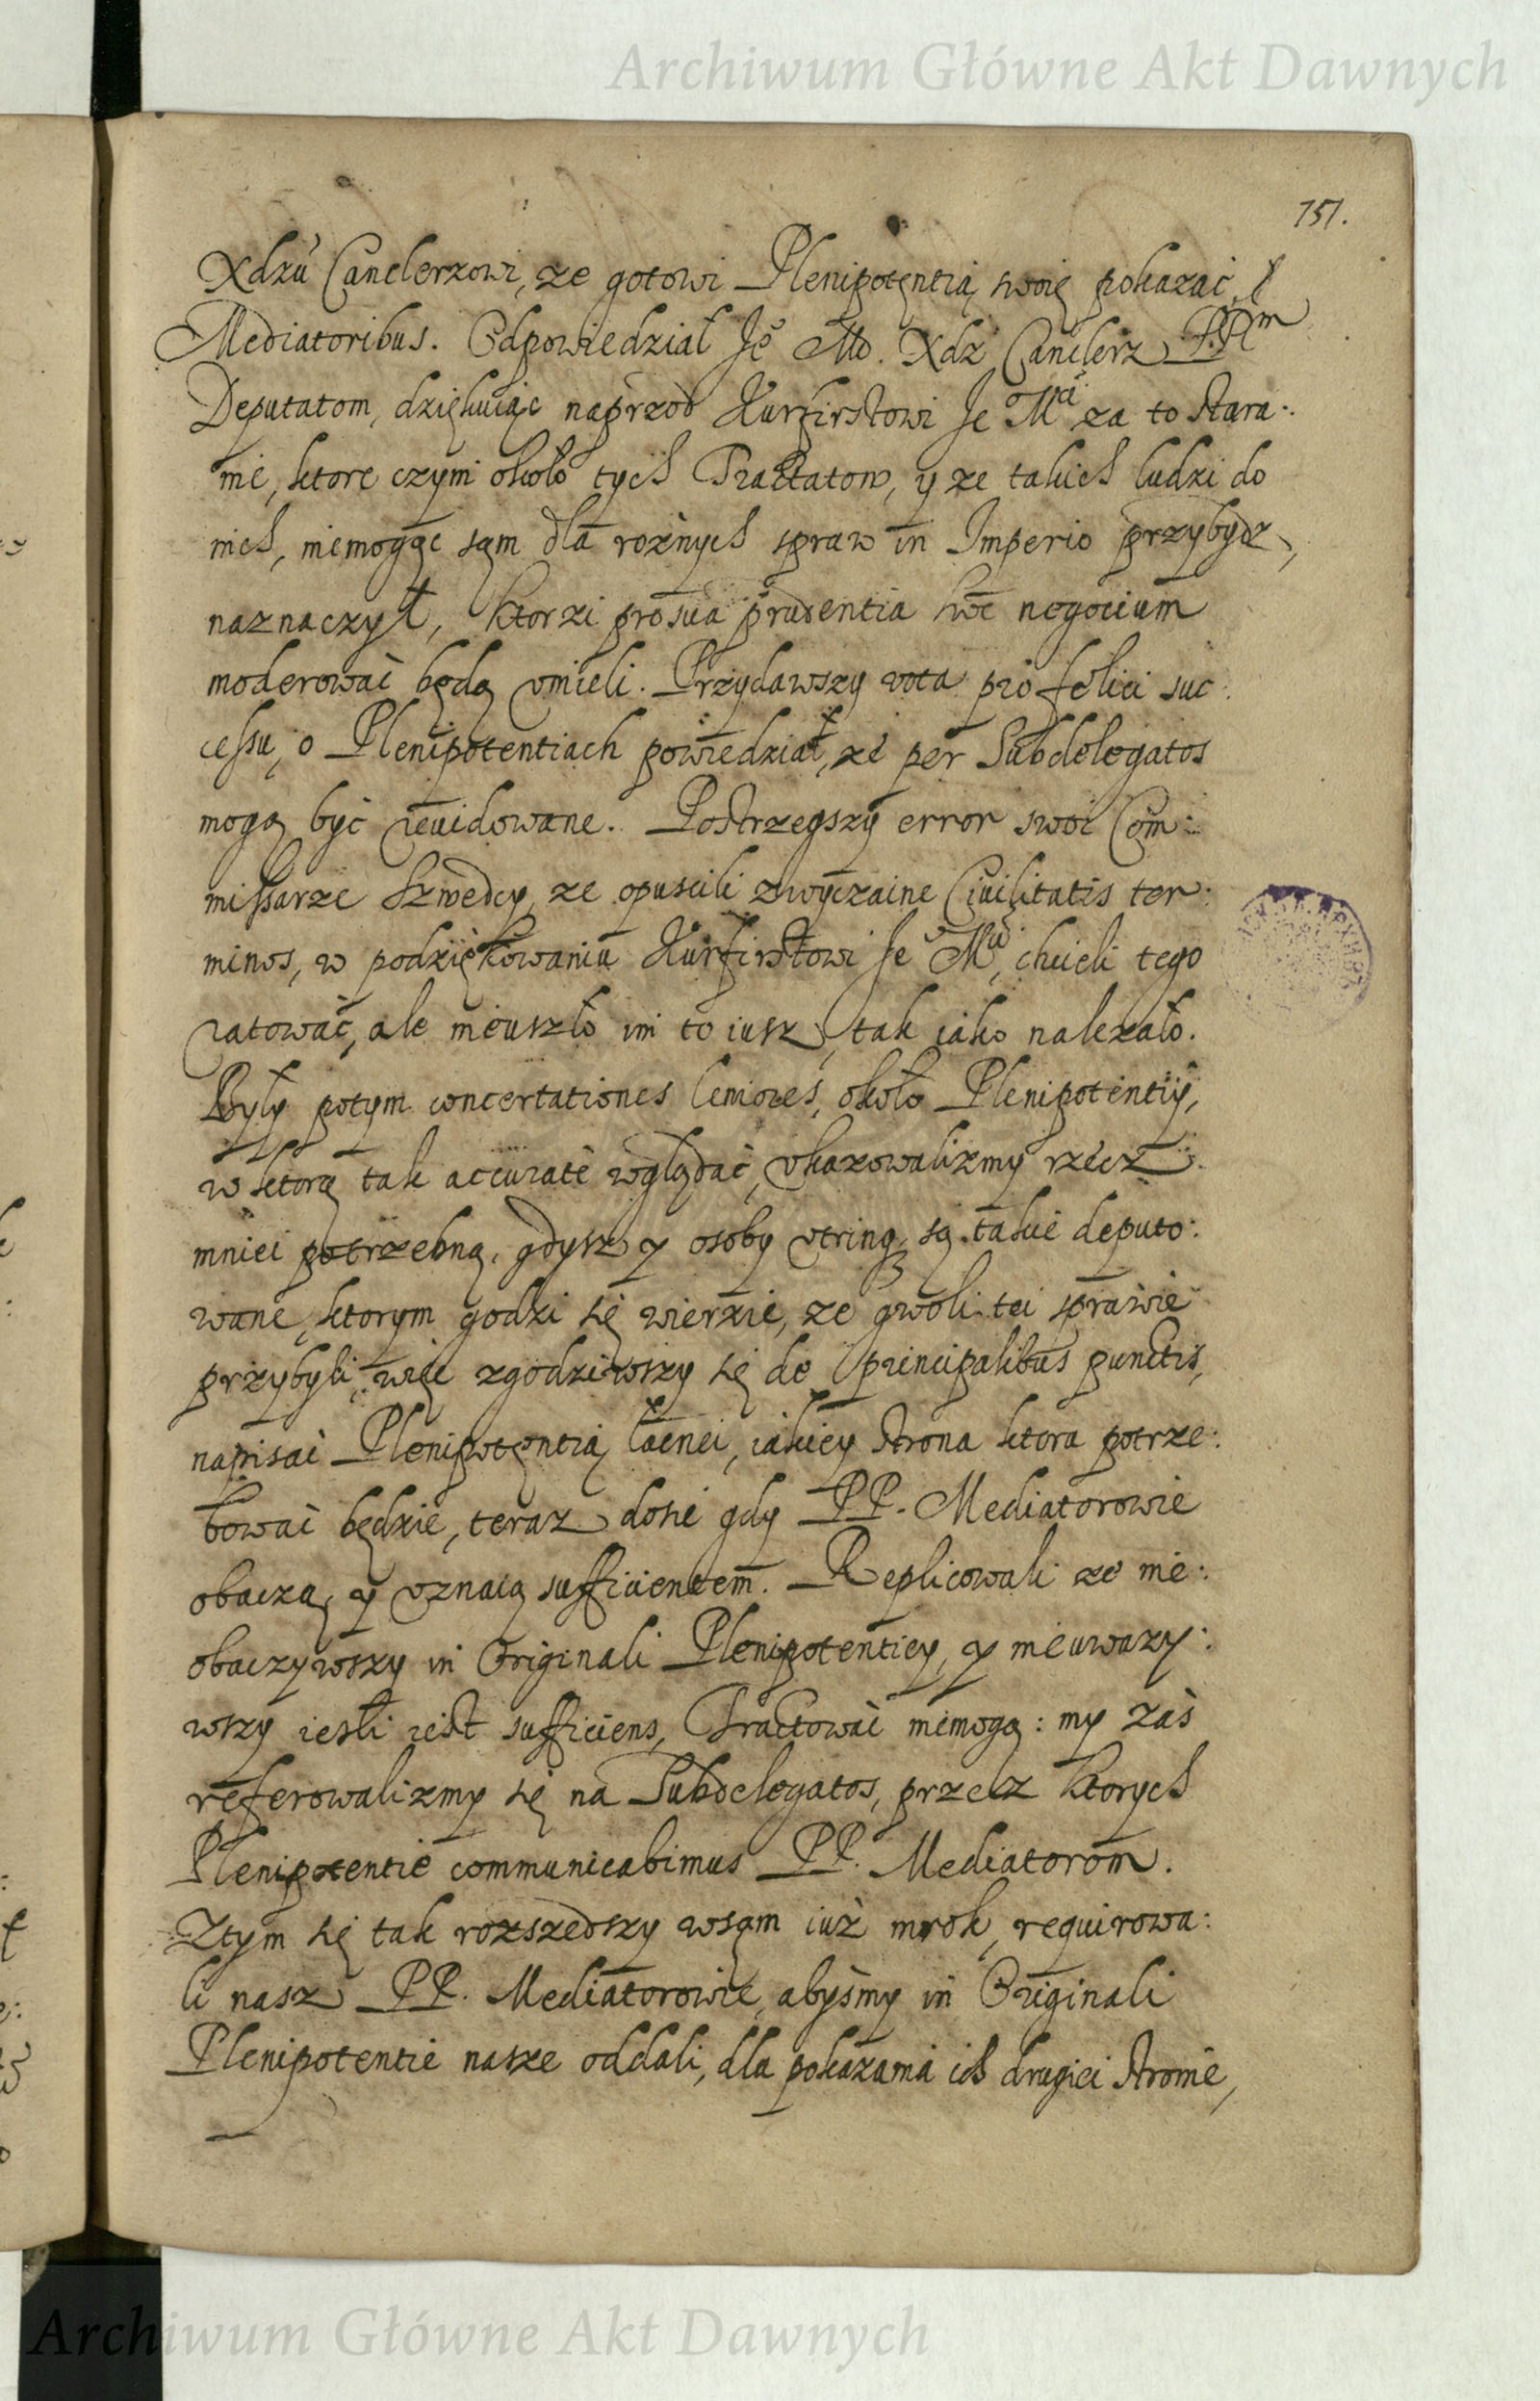 Archiwum Główne Akt Dawnych
751.
Xdzu Canclerzowi, ze gotowi Plenipotentią swoię pokazać
Mediatoribus. Odpowiedział Je° Mo. Xdz Canclerz P.P^m
Deputatom, dziękuiąc naprzod Kurfirstowi Je° M^ci za to stara:
nie, ktore czyni około tych Tractatow, y ze takich ludzi do
nich, niemogąc sąm dla roznych spraw in Imperio przybydz,
naznaczył, ktorzi pro sua prudentia hoc negocium
moderować będą umieli. Przydawszy vota pro felici suc:
cessu, o Plenipotentiach powiedział, ze per Subdelegatos
mogą być reuidowane. Postrzegszy error swoi Com:
missarze Szwedcy, ze opuscili zwyczaine Ciuilitatis ter:
minos, w podziękowaniu Kurfirstowi Je° M^ci, chcieli tego
ratować, ale nieuszło im to iusz, tak iako nalezało.
Były potym concertationes leniores, około Plenipotentiy,
w ktorą tak accuratè wglądać, vkazowalizmy rzecz
mniei potrzebną, gdysz y osoby vtrinq3 są takie deputo:
wane, ktorym godzi się wierzić, ze gwoli tei sprawie
przybyli, więc zgodziwszy się de principalibus punctis,
napisać Plenipotentią łacnei, iakiey strona ktora potrze:
bować będzie, teraz dosić gdy PP. Mediatorowie
obaczą, y vznaią sufficientem. Replicowali ze nie:
obaczywszy in Originali Plenipotentiey, y nieuwazy:
wszy iesli iest sufficiens, Tractować niemogą: my zàs
referowalizmy się na Subdelegatos, przesz ktorych
Plenipotentie communicabimus PP. Mediatorom.
Ztym się tak rozszedszy w sąm iuż mrok, requirowa:
li nasz PP. Mediatorowie, abysmy in Originali
Plenipotentie nasze oddali, dla pokazania ich drugiei stronie,
Archiwum Główne Akt Dawnych